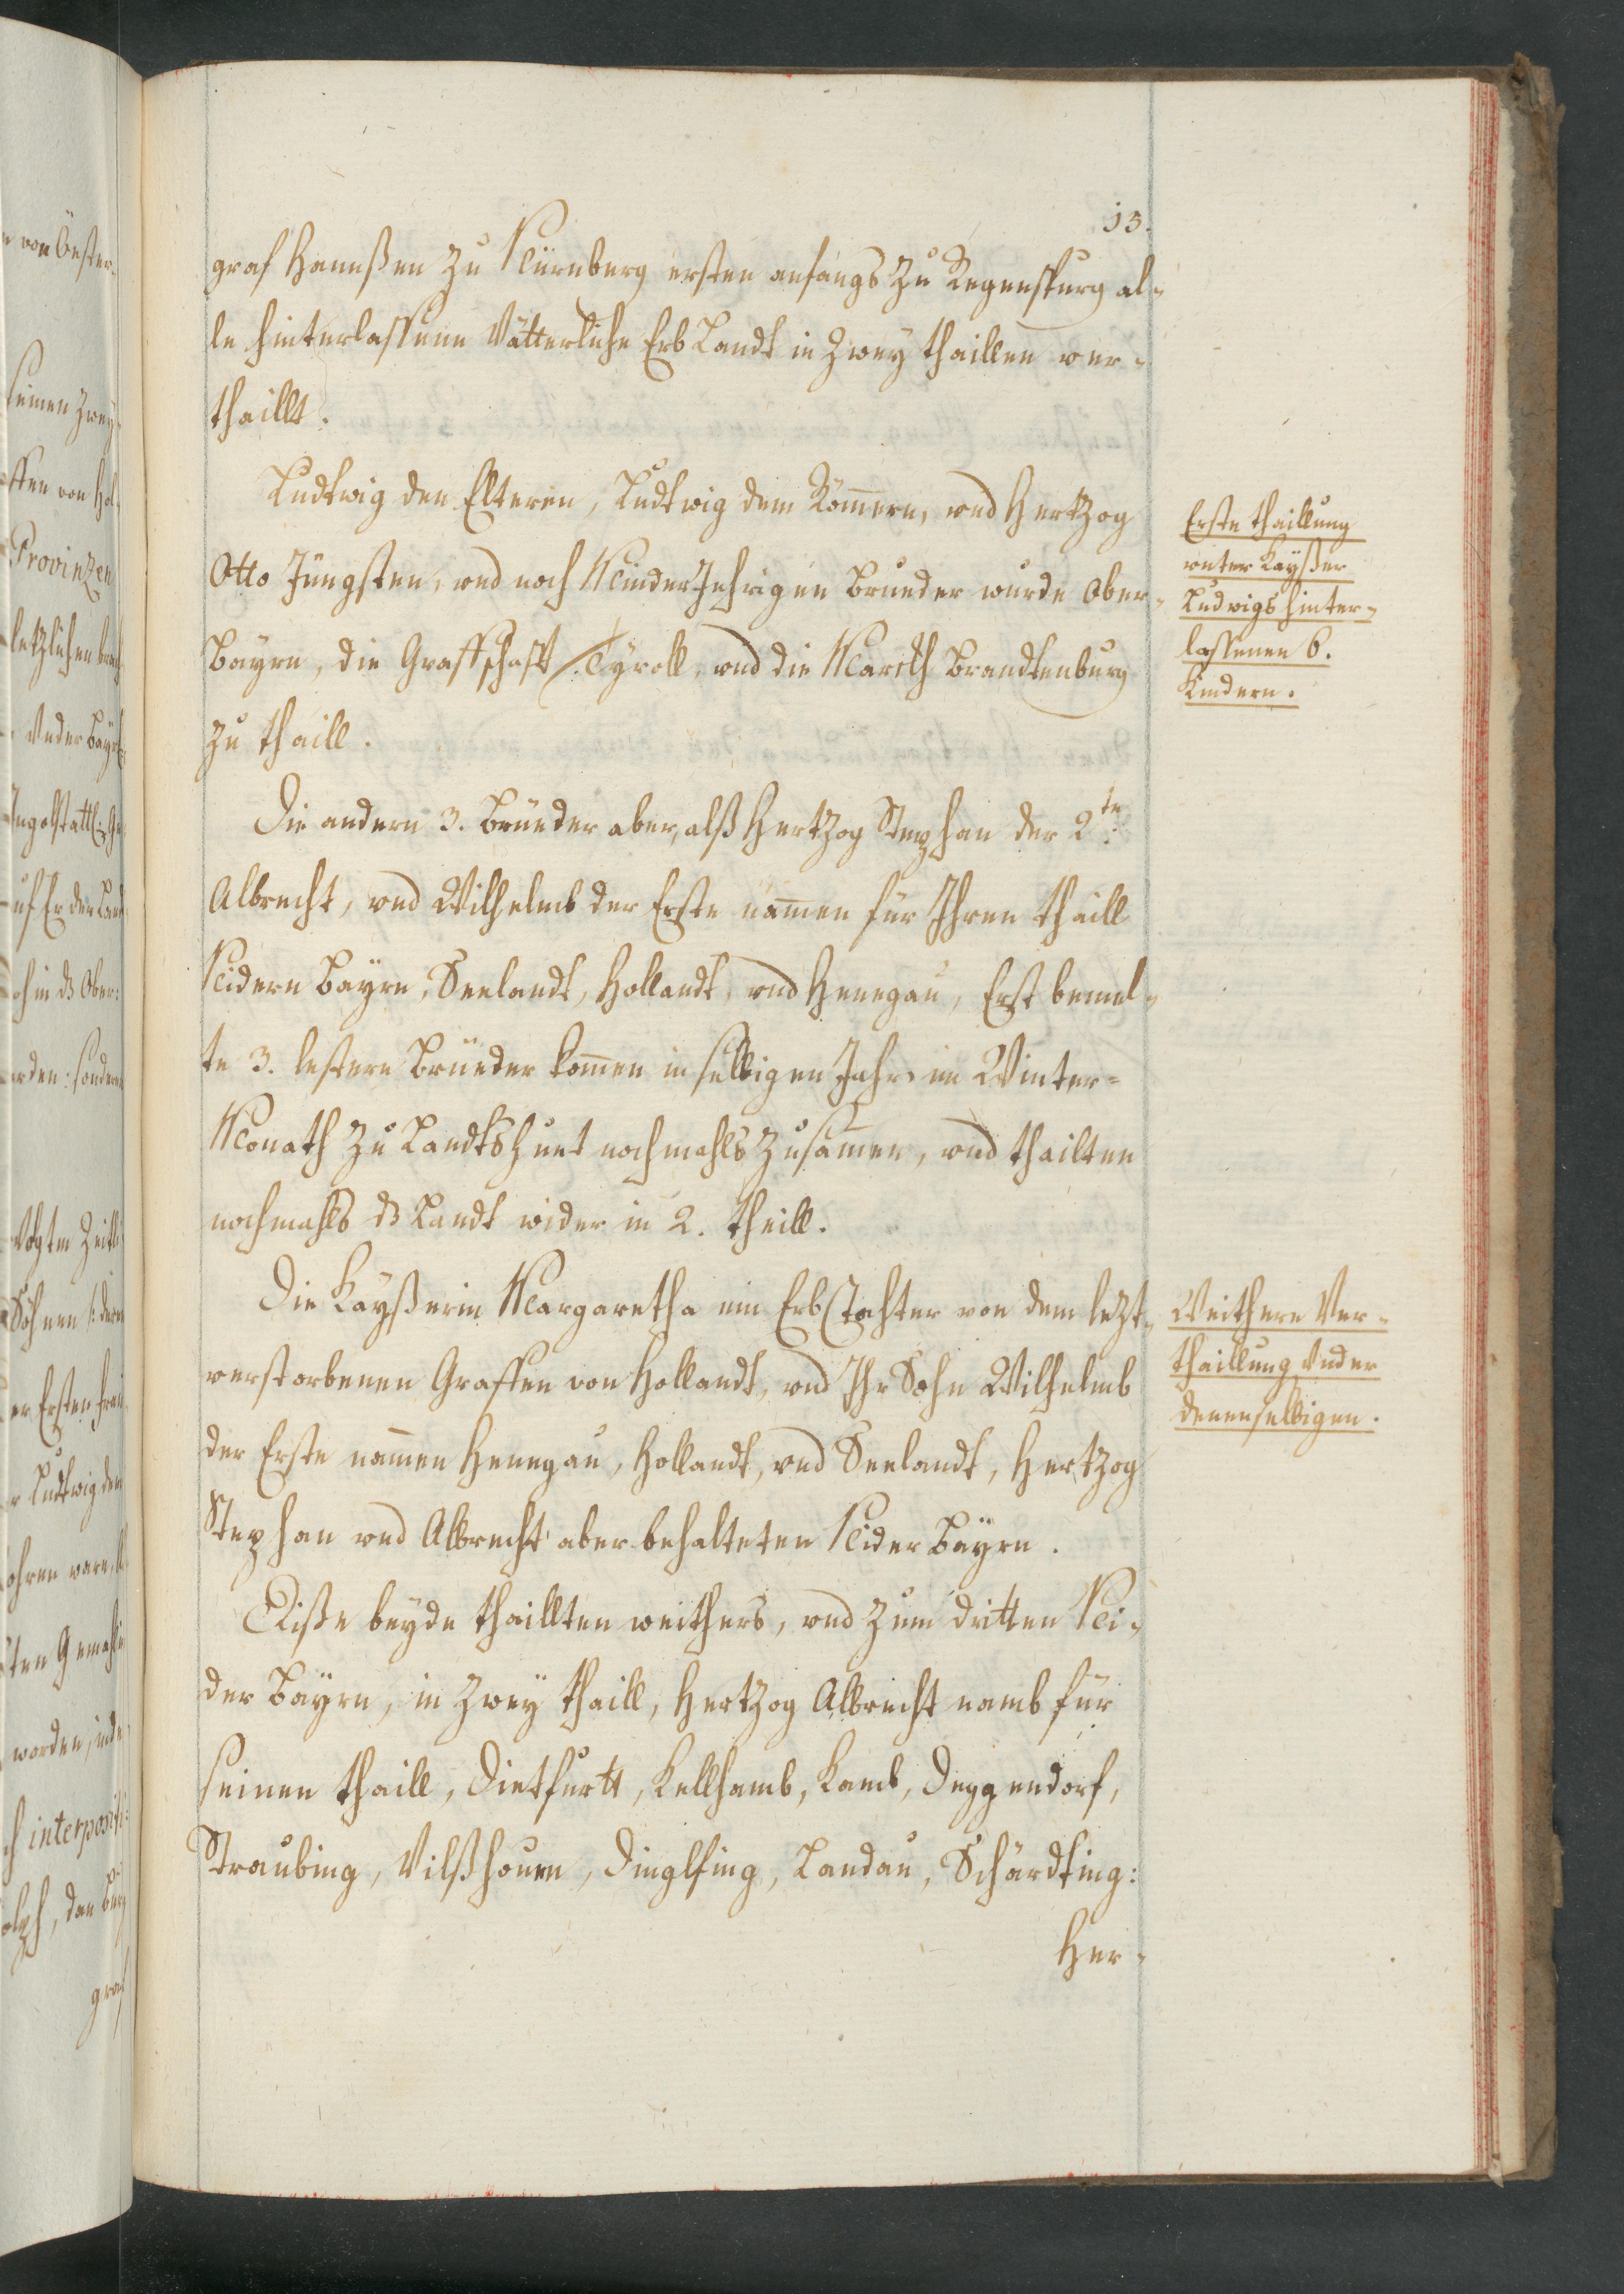 13.
graf Hannßen zu Nürnberg ersten anfangs zu Regenspurg al-
le hinterlassene Vätterliche Erb Landt in zwey thaillen ver-
thaillt.
Ludtwig den Elteren, Ludtwig dem Römern, vnd Hertzog
Otto Jüngsten, vnd noch Minder Jehrigen Brueder wurde Ober-
Bayrn, die Graffschafft Tyroll, vnd die Marckh Brandtenburg
zu thaill.
Die andern 3. Brüeder aber, alß Hertzog Stephan der 2te
Albrecht, vnd Wilhelmb der Erste namen für Ihren thaill
Nidern Bayrn, Seelandt, Hollandt, vnd Henegau, Erst bemel-
te 3. lestere Brüeder komen in selbigen Jahr im Winter-
Monath zu Landtshuet nochmahls zusamen, vnd thailten
nochmahls dz Landt wider in 2. theill.
Die Kayßerin Margaretha ein Erb Tochter von dem lezt-
verstorbenen Graffen von Hollandt, vnd Ihr Sohn Wilhelmb
der Erste namen Henegau, Hollandt, vnd Seelandt, Hertzog
Stephan vnd Albrecht aber behalteten Nider Bayrn.
Diße beyde thaillten weithers, vnd zum dritten Ni-
der Bayrn, in zwey thaill, Hertzog Albrecht namb für
seinen thaill, Dietfurtt, Kellhamb, Kamb, Deggendorf,
Straubing, Vilßhouen, Dinglfing, Landau, Schärdting:
Her-
Erste thaillung
vnter Kayßer
Ludwigs hinter-
lassenen 6.
Kindern.
Weithere Ver-
thaillung Vnder
denenselbigen.
von Öster-
seinen zwey
ffen von Hol-
Provinzen
letzlichen
Vnder Bayrn
worden, inde
interposi
graf